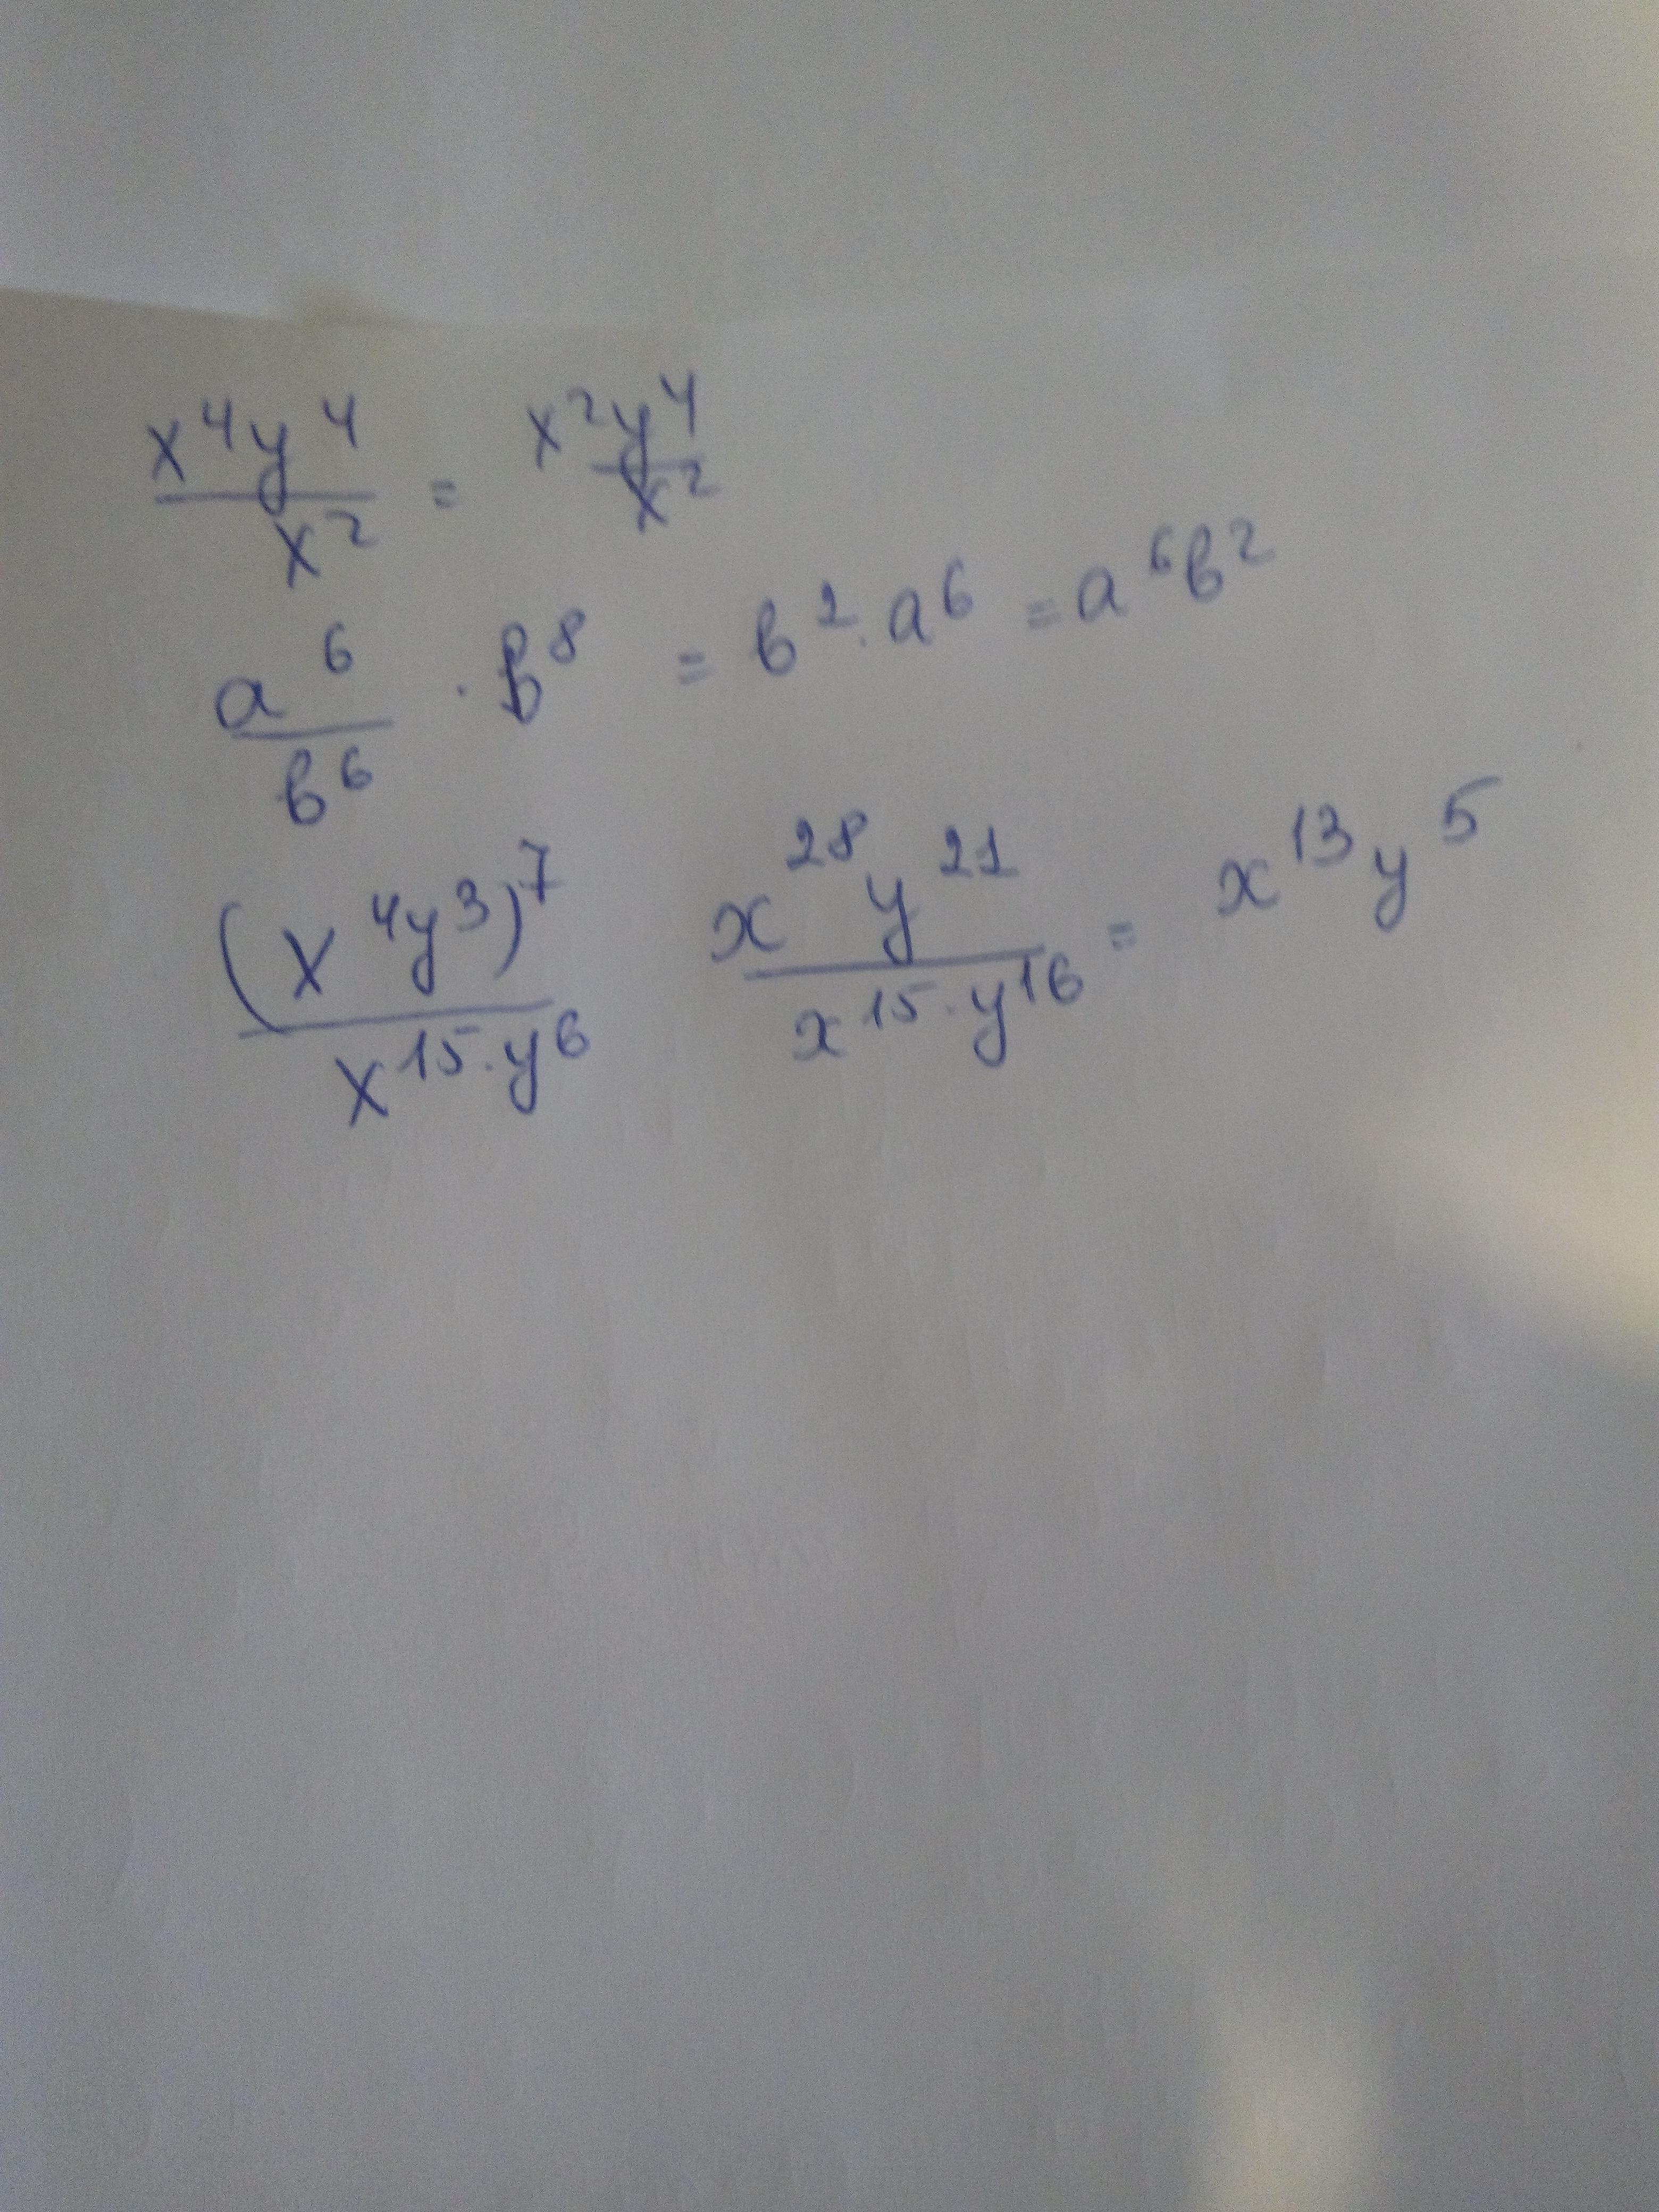 x⁴y⁴/x² = x²y⁴/x²
a⁶/в⁶ · в⁸ = в² · а⁶ = а⁶в²
(x⁴y³)⁷/x¹⁵·y⁶ x²⁸y²¹/x¹⁵·y¹⁶ = x¹³y⁵